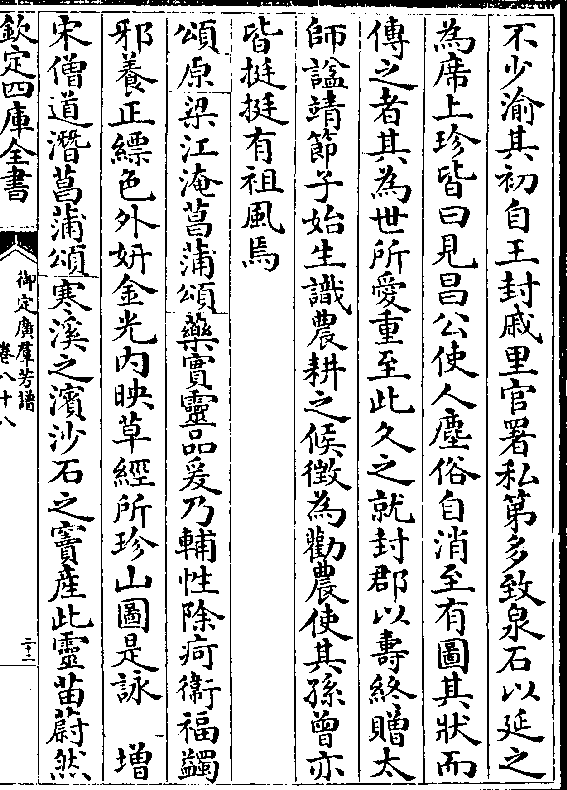 不少渝其初自王封戚里官署私第多致泉石以延之
為席上珍皆曰見昌公使人塵俗自消至有圖其狀而
傳之者其為世所愛重至此久之就封郡以壽終贈太
師諡靖節子始生識農耕之候徴為勸農使其孫曾亦
皆挺挺有祖風焉
頌原梁江淹菖蒲頌藥實靈品爰乃輔性除疴衞福蠲
邪養正縹色外妍金光内映草經所珍山圖是詠　增
宋僧道潛菖蒲頌寒溪之濱沙石之竇産此靈苗蔚然
欽定四庫全書
御定廣羣芳譜
卷八十八
二十二